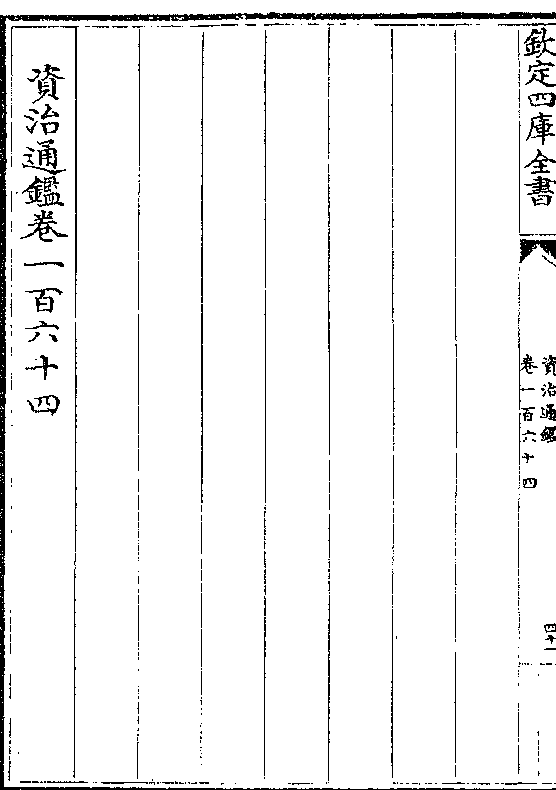 欽定四庫全書
資治通鑑
卷一百六十四
四十一
資治通鑑卷一百六十四